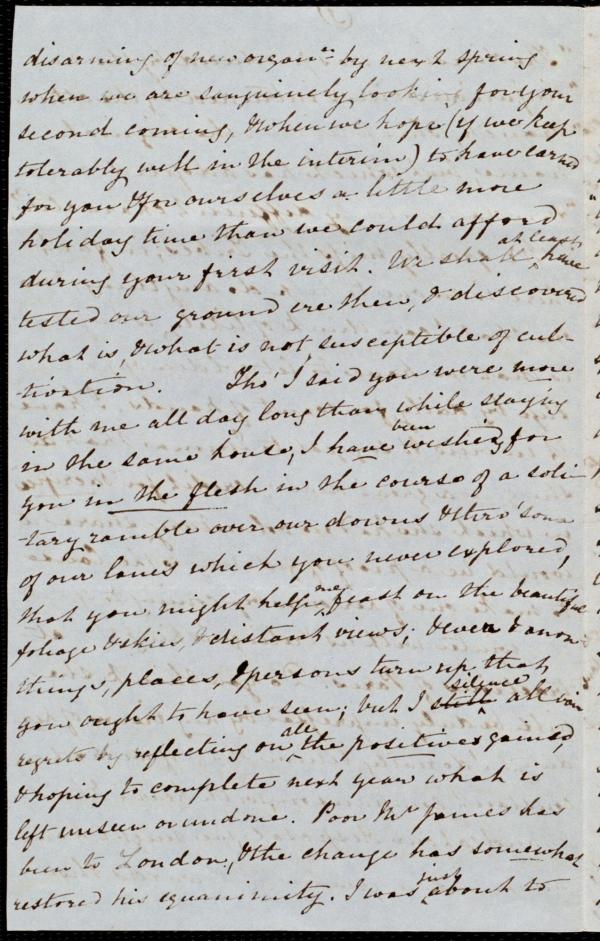 disarming of new organns by next spring
when we are sanguinely looking for your
second coming, & when we hope (if we keep
tolerably well in the interim) to have earned
for you & for ourselves a little more
holiday time than we could afford
during your first visit. We shall at least have
tested our ground ere then, & discovered
what is, & what is not, susceptible of cul-
tivation. Tho' I said you were more
with me all day long than while staying
in the same house, I have been wishing for
you in the flesh in the course of a soli-
tary ramble over our downs & thro' some
of our lanes which you never explored,
that you might help me feast on the beautiful
foliage & skies, & distant views; & ever & anon
things, places, & persons turn up that
you ought to have seen; but I still silence all vain
regrets by reflecting on all the positives gained,
& hoping to complete next year what is
left unseen or undone. Poor Mr James has
been to London, & the change has somewhat
restored his equanimity. I was just about to